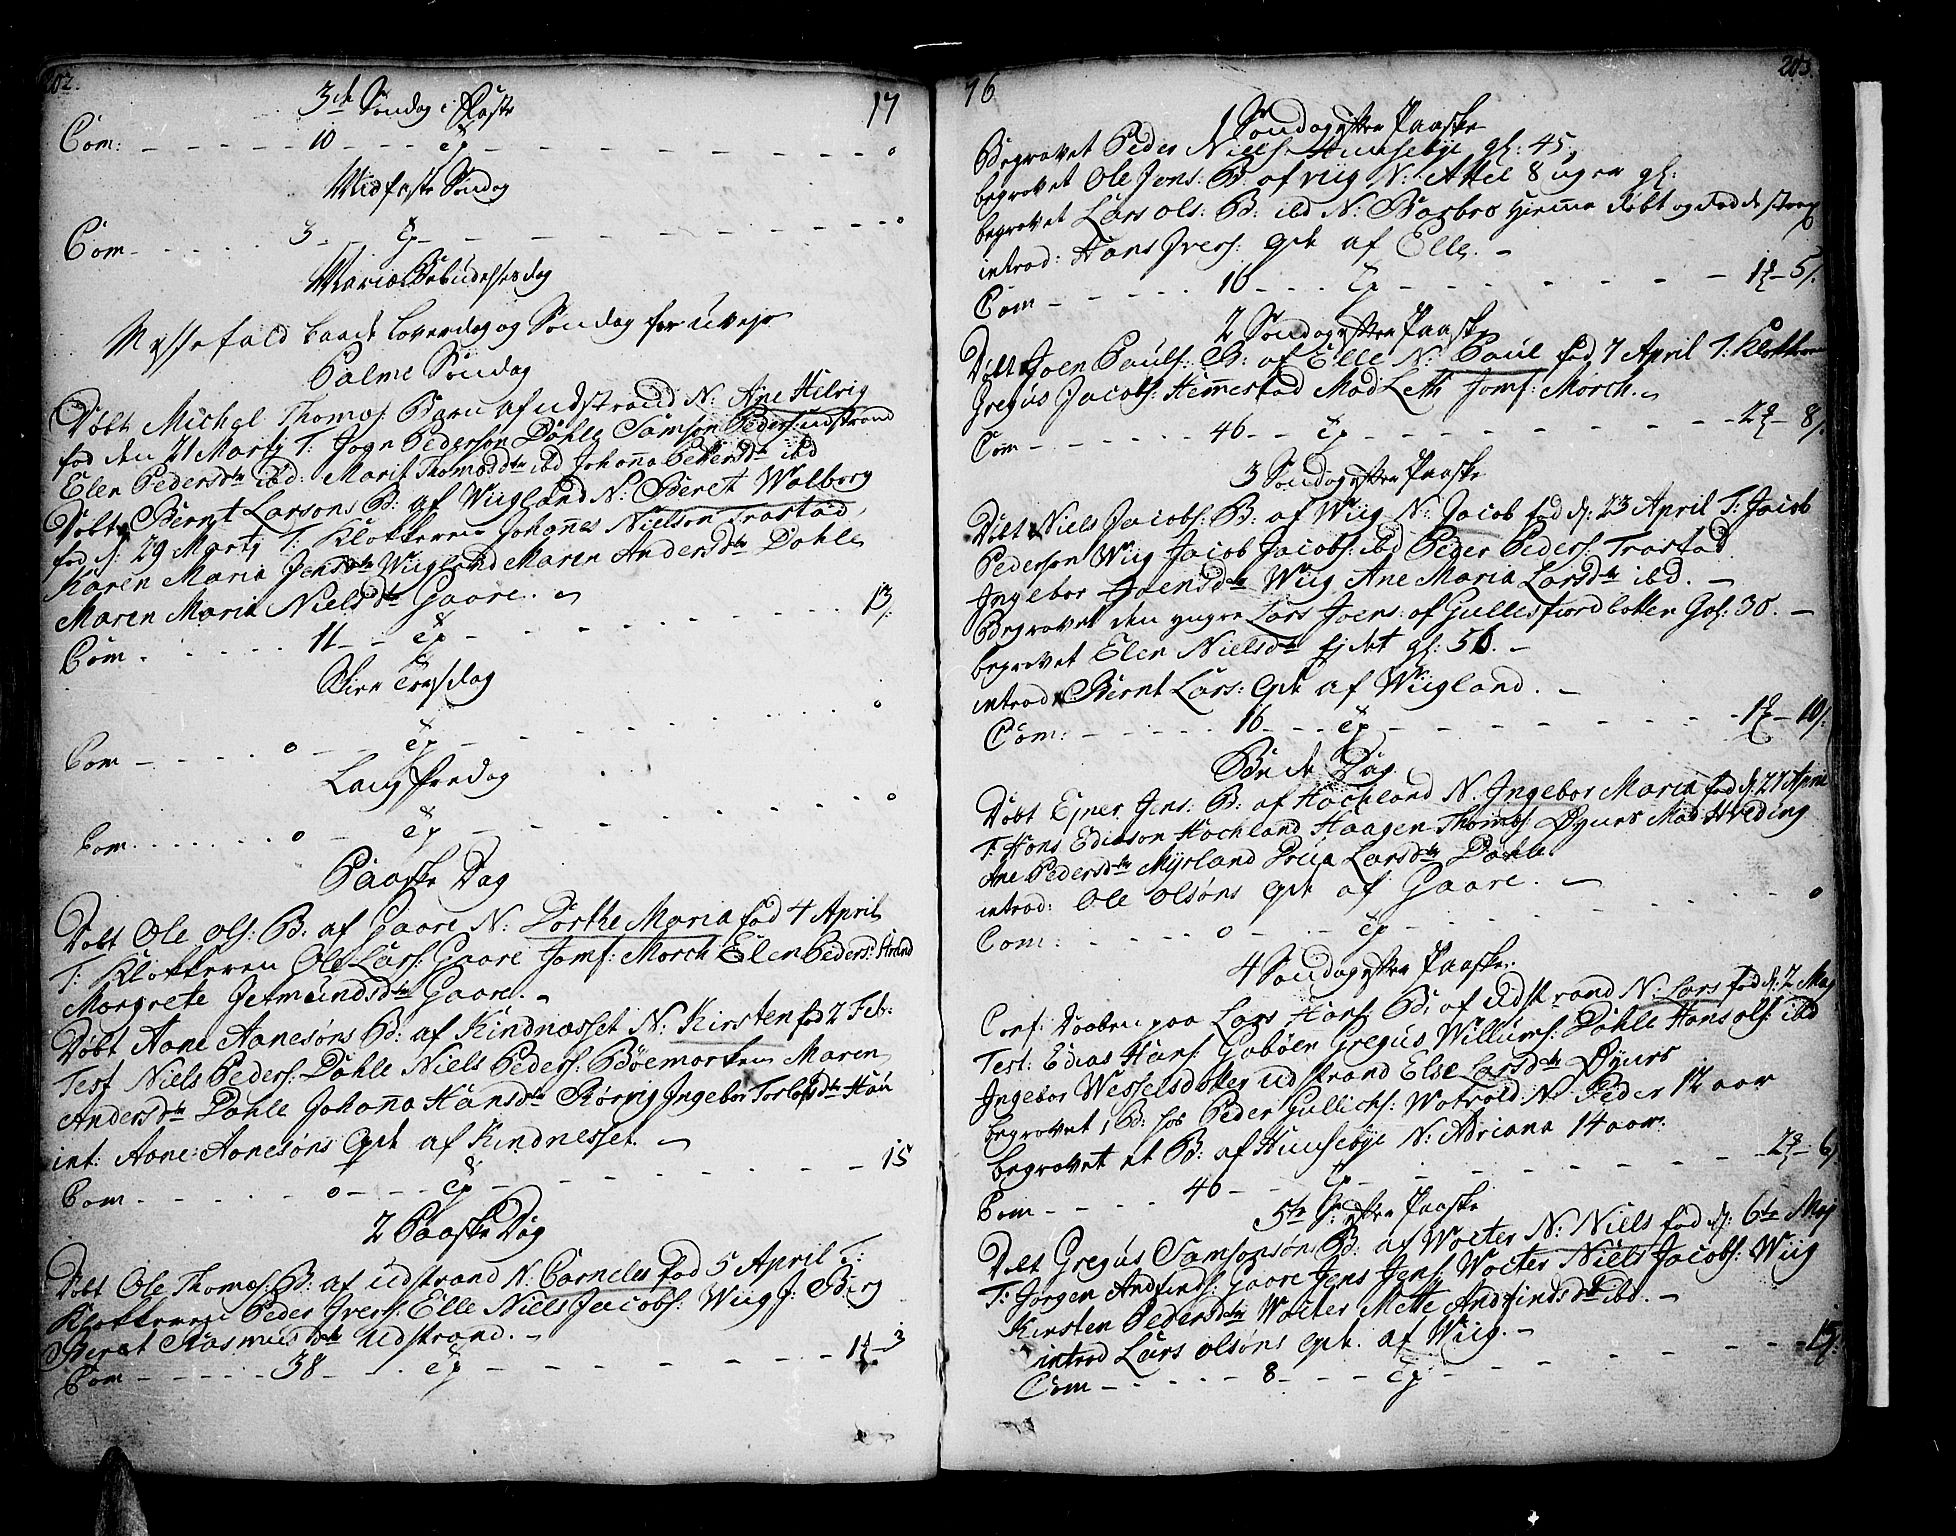 202.
3de Søndag i Faste 17
Com: 10 Ep 0
Midfaste Søndag
Com 3 Ep 0
Mariæ Bebudelsesdag
Messefald baade Løverdag og Søndag for Uvejr
Palme Søndag
Døbt Michel Thomæs: Barn af udstrand N: Ane Hilvig
fød den 21 Martj T: Joen Pederson Dahle Samson Peders: udstrand
Elen Pedersdtr ibd: Marit Thomasdtr ibd Johanna Pettersdtr ibd
Døbt Bernt Larsons B: af Wiigland N: Beret Walborg
fød d: 29 Martj T: Klokkeren Johanes Nielson Trastad
Karen Maria Jensdtr Wiigland Maren Andersdtr Dahle
Maren Maria Nielsdtr Gaare.
Com 11 Ep 13
Skier Torsdag
Com 0 Ep 0
Lang Fredag
Com 0 Ep 0
Paaske Dag
Døbt Ole Ols: B: af Gaare N: Dorthe Maria fød 4 April
T: Klokkeren Ole Lars: Gaare Jomf: Morch Elen Peders: Strand
Margrete Jetmundsdtr Gaare.
Døbt Aane Aanesøns B: af Kindnæsset N: Kirsten fød 2 Febr:
Test Niels Peders: Dahle Niels Peders: Bøemarken Maren
Andersdtr Dahle Johanna Hansdtr Rørvig Ingebor Torlefsdtr Hau
int: Aane Aanesøns Qvi: af Kindnesset.
Com 0 Ep 15
2 Paaske Dag
Døbt Ole Thomæs: B: af Udstrand N: Corneles fød 5 April T:
Klokkeren Peder Ivers: Elle Niels Jacobs: Wiig J: Berg
Beret Rasmusdtr Udstrand.
Com 38 Ep 1 - 3
76 203.
1 Søndag efter Paaske
Begravet Peder Niels: Hunsebye gl: 45.
begravet Ole Jens: B: af Wiig N: Attel 8 uger gl:
begravet Lars Ols: B: ibd N: Barbro hjemme døbt og døde strax
introd: Hans Ivers: Qvi af Elle.
Com 16 Ep 1 - 5
2 Søndag efter Paaske
Døbt Joen Pauls: B: af Elle N: Paul fød 7 April T: Klokkeren
Gregus Jacobs: Hemmestad Mad Leth Jomf: Morch.
Com 46 Ep 2 - 8
3 Søndag efter Paaske
Døbt Niels Jacobs: B: af Wiig N: Jacob fød d: 23 April T: Jacob
Pederson Wiig Jacob Jacobs: ibd Peder Peders: Trastad
Ingebor Joensdtr Wiig Ane Maria Larsdtr ibd.
Begravet den yngre Lars Joens: af Gullesfiordbotten Gl: 30.
begravet Elen Nielsdtr gl: 56.
introd: Bernt Lars: Qvi af Wiigland.
Com: 16 Ep 1 - 10
Bede Dag
Døbt Ejner Jens: B: af Hochland N: Ingebor Maria fød d: 27 April
T: Hans Ediason Hochland Haagen Thomæs: Øynes Mad Hveding
Ane Pedersdtr Myrland Larsdtr Dahle
introd: Ole Olsøns Qvi af Gaare.
Com: 0 Ep 0
4 Søndag efter Paaske:
Conf: Daaben paa Lars Hans: B: af Udstrand N: Lars fød d: 2 Maj
Test: Edias Hans: Gabøen Gregus Willums: Dahle Hans Ols: ibd
Ingebor Wesselsdotter Udstrand Else Larsdtr Øynes
begravet 1 B: hos Peder Gullichs: Watvold N: Peder 12 aar
begravet et B: af Hunsebye N: Adriana 14 aar.
Com 46 Ep 2 - 6
5te S: efter Paaske
Døbt Gregus Samsonsøns B: af Wolter N: Niels fød d: 6te Maj
T: Jørgen Andfinds: Gaare Jens Jens: Wolter Niels Jacobs: Wiig
Kirsten Pedersdtr Wolter Mette Andfindsdtr ibd.
introd Lars Olsøns Qvi. af Wiig.
Com 8 Ep 15